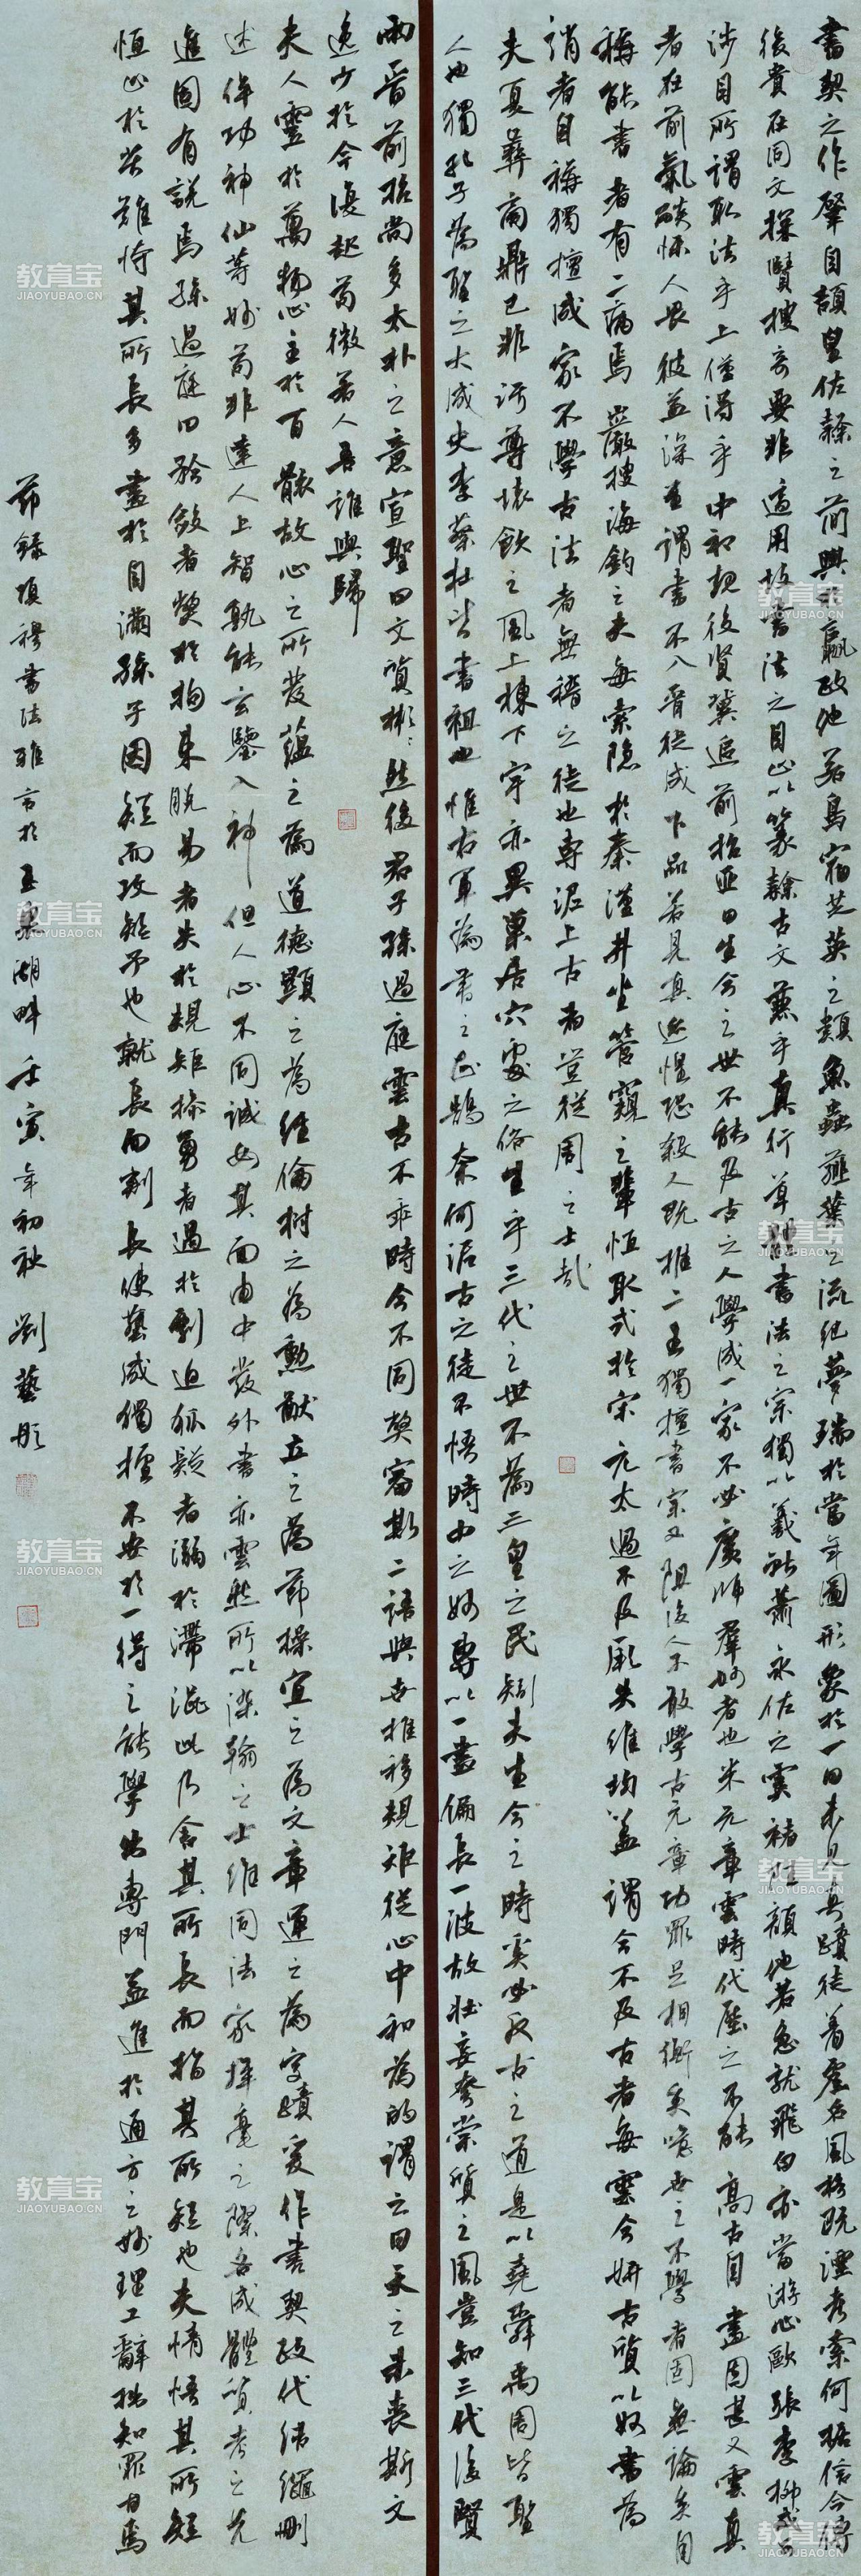 書契之作肇自頡皇佐隸之簡興於嬴政他若鳥宿芝英之類魚蟲薤葉之流紀夢瑞於當年圖形象於一日未見真蹟徒著虛名風格既湮考索何據信今傳
後貴在同文探賢搜奇要非適用故書法之目止以篆隸古文兼乎真行草體書法之宗獨以羲獻蕭永佐之虞褚陸顏他若急就飛白亦當游心歐張李柳或可
涉目所謂取法乎上僅得乎中初規後賢冀追前哲匪曰生今之世不能及古之人學成一家不必廣師群妙者也米元章雲時代壓之不能高古自畫固甚又雲真
者在前氣燄懾人畏彼益深至謂書不入晉徒成下品若見真跡惶恐殺人既推二王獨擅書宗又阻後人不敢學古元章功罪足相衡矣噫世之不學者固無論矣自
稱能書者有二病焉巖搜海釣之夫每索隱於秦漢井坐管窺之輩恒取式於宋元太過不及厥失維均蓋謂今不及古者每雲今妍古質以奴書為
誚者自稱獨擅成家不學古法者無稽之徒也專泥上古者豈從周之士哉
夫夏彝商鼎已非汙尊坯飲之風上棟下宇亦異巢居穴處之俗生乎三代之世不為三皇之民矧夫生今之時奚必反古之道是以堯舜禹周皆聖
人也獨孔子為聖之大成史李蔡杜皆書祖也惟右軍為書之正鵠奈何泥古之徒不悟時中之妙專以一畫偏長一波故壯妄誇崇質之風豈知三代後賢
兩晉前哲尚多太朴之意宣聖曰文質彬彬然後君子孫過庭雲古不乖時今不同弊審斯二語與世推移規矩從心中和為的謂之曰天之未喪斯文
逸少於今復起苟微若人吾誰與歸
夫人靈於萬物心主於百骸故心之所發蘊之為道德顯之為經綸樹之為勳猷立之為節操宣之為文章運之為字蹟爰作書契政代結繩刪
述侔功神仙等妙苟非達人上智孰能玄鑒入神但人心不同誠如其面由中發外書亦雲然所以染翰之士雖同法家揮毫之際各成體質考之先
進固有說焉孫過庭曰矜斂者弊於拘束脫易者失於規矩操勇者過於剽迫狐疑者溺於滯澀此乃舍其所長而指其所短也夫悟其所短
恒止於苦難恃其所長多畫於自滿孫子因短而攻短予也就長而刪長使藝成獨擅不安於一得之能學出專門益進於通方之妙理工辭拙知罪甘焉
節錄項穆書法雅言於玉泉湖畔壬寅年初秋劉藝彤
教育宝
JIAOYUBAO.CN